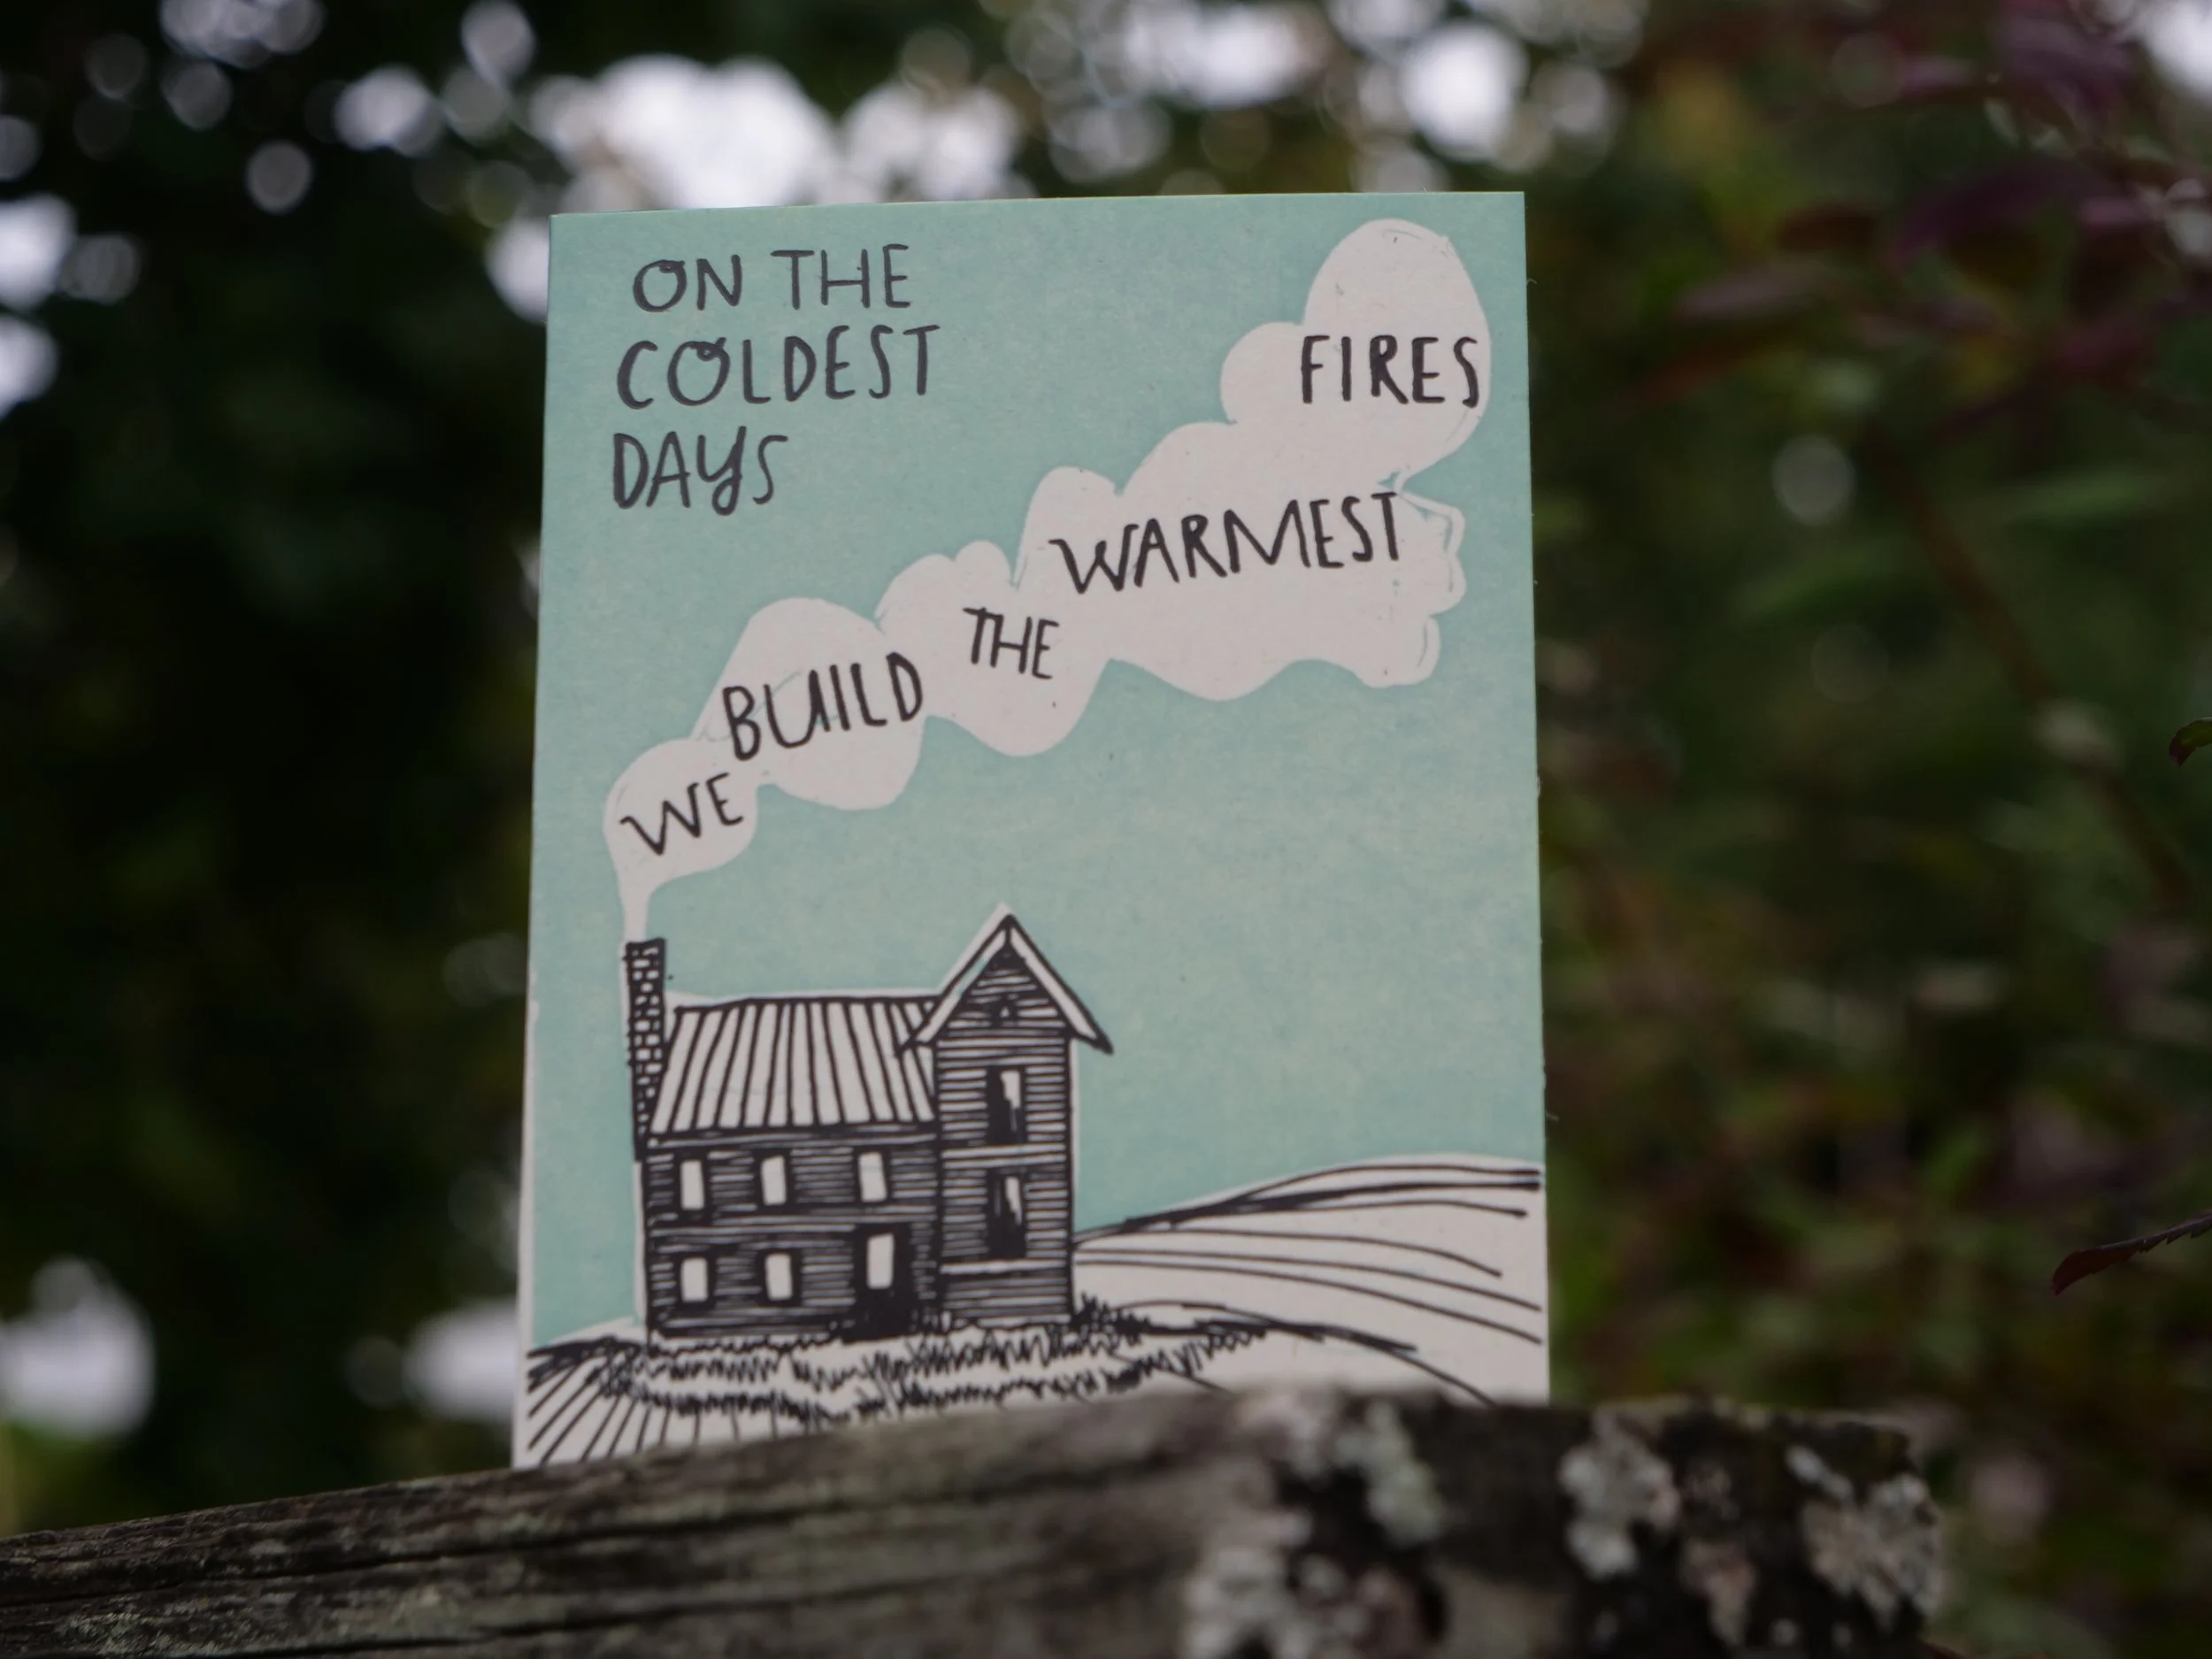 ON THE
COLDEST
DAYS
WE
BUILD
THE
WARMEST
FIRES